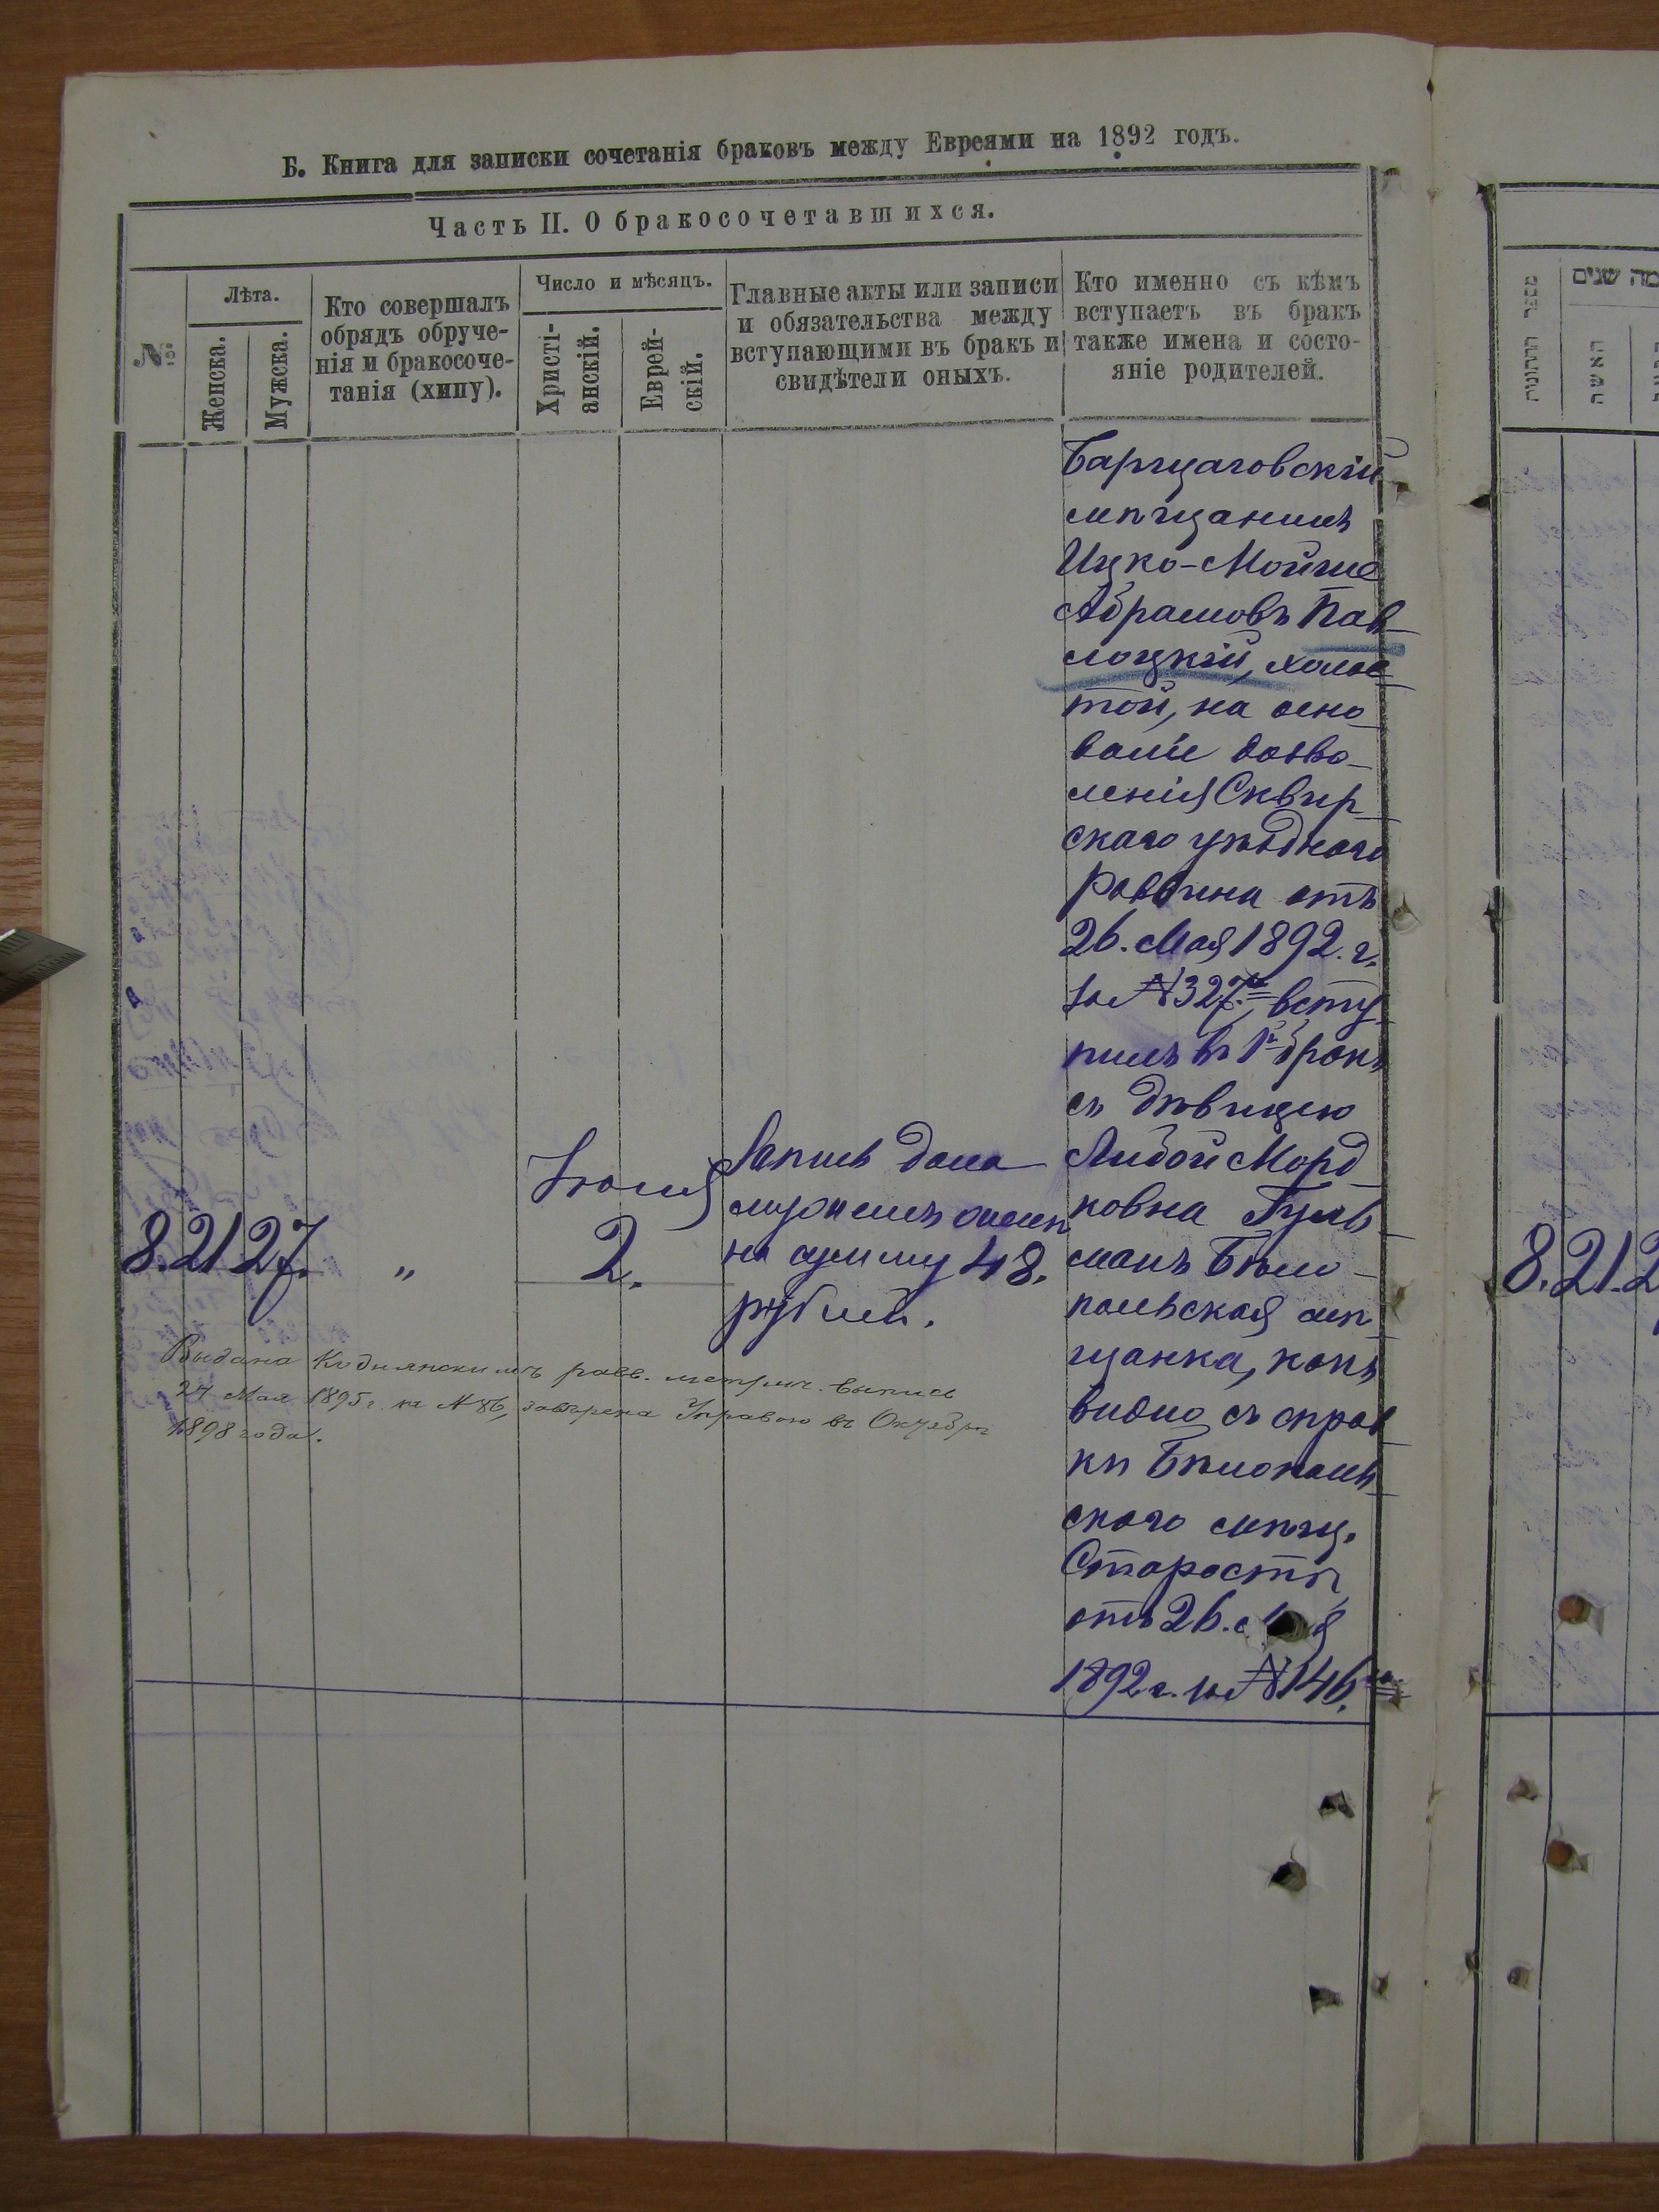 Б. Книга для записки сочетанія браковъ между Евреями на 1892 годъ.
Часть II. О бракосочетавшихся.
№
Лѣта.
Женска.
Мужска.
Кто совершалъ
обрядъ обруче-
нія и бракосоче-
танія (хипу).
Число и мѣсяцъ.
Христі-
анскій.
Еврей-
скій.
Главные акты или записи
и обязательства между
вступающими въ бракъ и
свидѣтели оныхъ.
Кто именно съ кѣмъ
вступаетъ въ бракъ
также имена и состо-
яніе родителей.
8. 21 27. „
Іюня
2.
Запись дана
мужемъ женѣ
на сумму 48.
рублей.
мѣщанинъ
Ицко-Мойше
Абрамовъ Пав-
лоцкій, холос-
той, на осно-
ваніи дозво-
ленія Сквир-
скаго уѣзднаго
Раввина отъ
26. Мая 1892. г.
за №327., всту-
пилъ въ 1й бракъ
съ дѣвицею
Либой Морд-
ковна Гуль-
манъ Бѣло-
польская мѣ-
щанка, какъ
видно съ справ-
ки Бѣлополь-
скаго мѣщ.
Старосты
отъ 26. Мая
1892 г. за №146.
Выдана Коднянскимъ равв. метрич. выпись
27 Мая 1895 г. за № 86, завѣрена Управою въ Октябрѣ
1898 года.
מספר החתונות
מה שנים
האשה
8. 21. 2